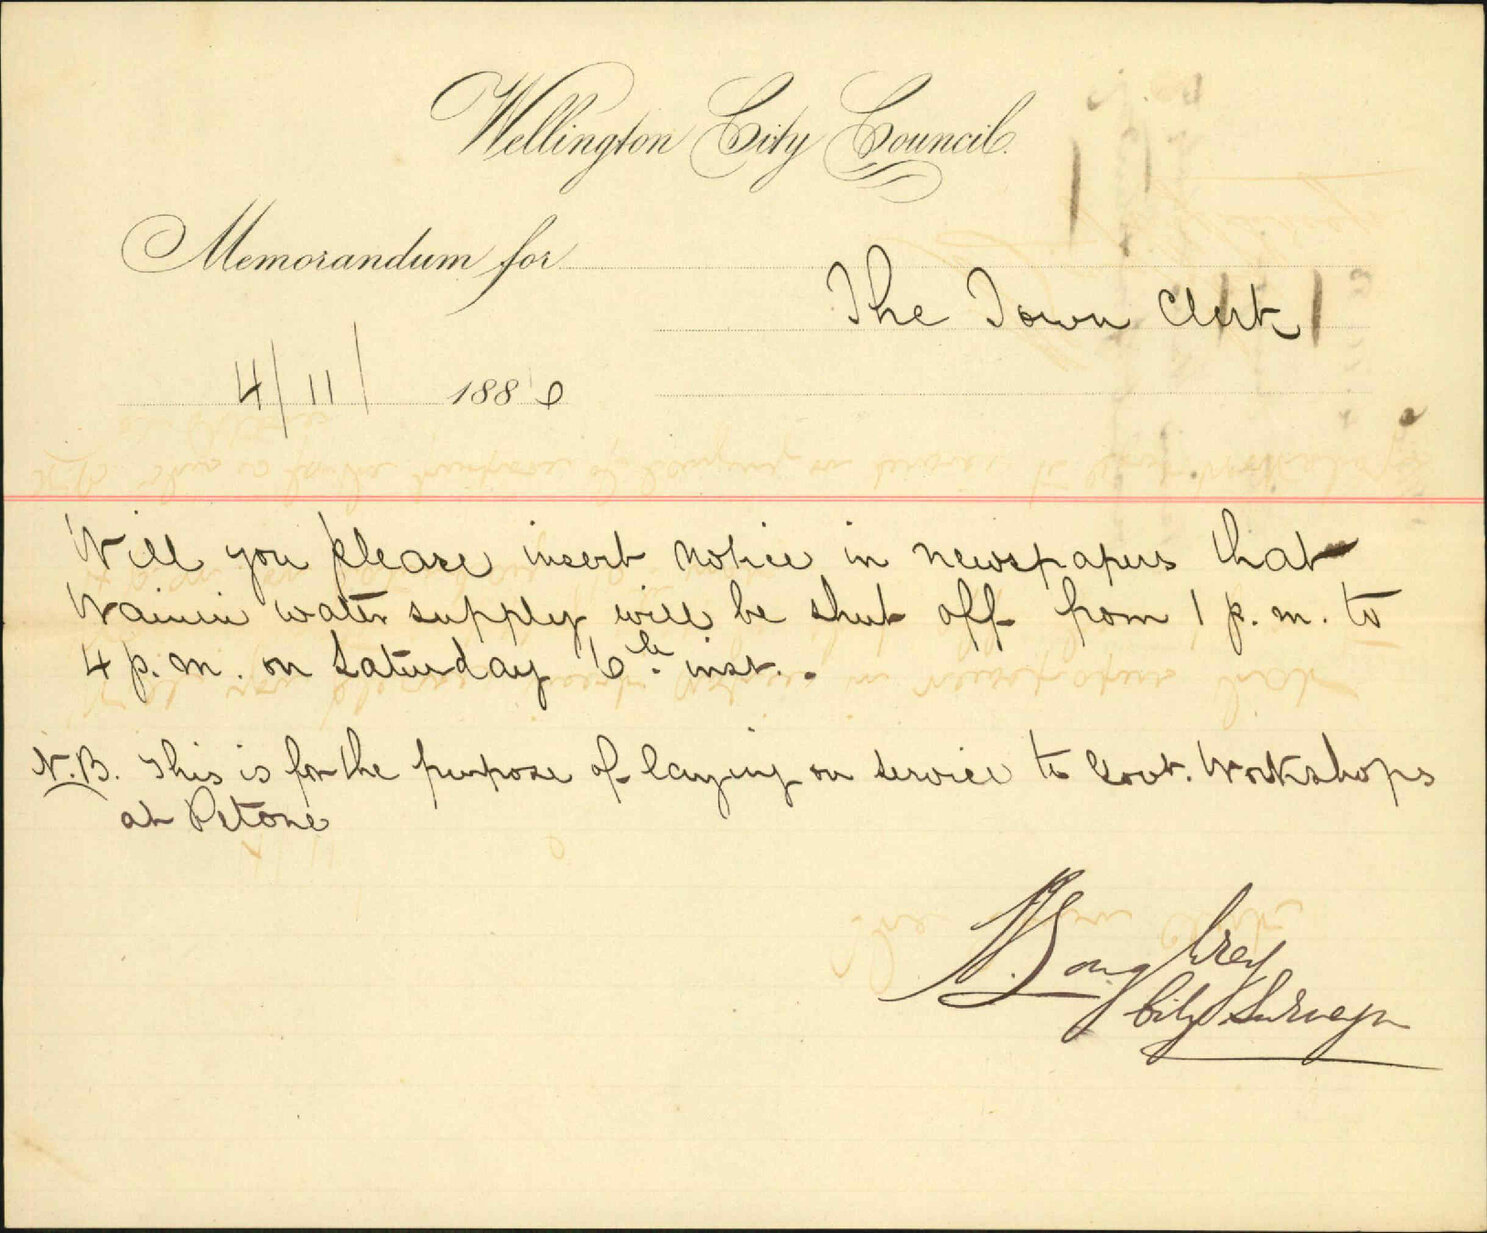 Wellington City Council.
Memorandum for
The Town Clerk
4/11/ 1886
Will you please insert notice in newspapers that
Wainui water supply will be shut off from 1 p.m. to
4 p.m. on Saturday 6th inst.
N.B. This is for the purpose of laying on service to Govt. Workshops
at Petone
City Surveyor